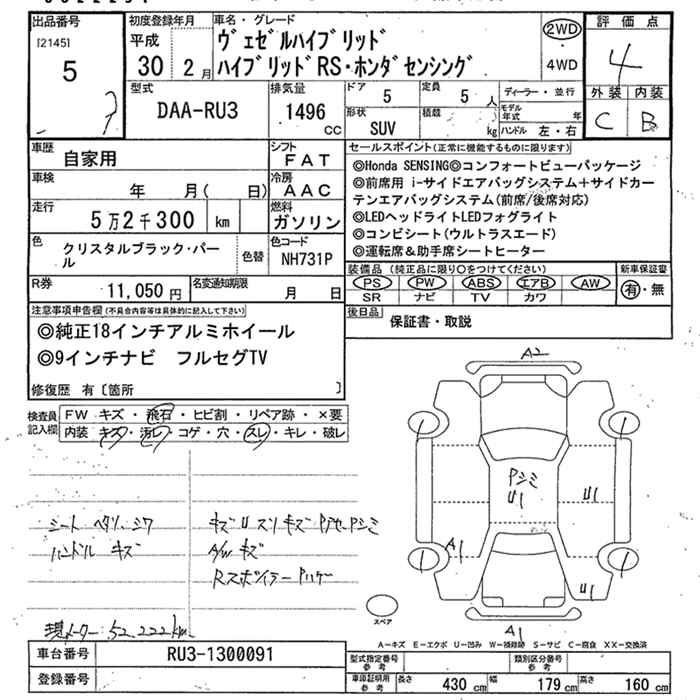 出品番号
[2145]
5
初度登録年月
平成
30 2月
車名・グレード
ヴェゼルハイブリッド
ハイブリッドRS・ホンダセンシング
2WD
・
4WD
評価点
4
外装 内装
C B
型式
DAA-RU3
排気量
1496
CC
ドア
5
定員
5 人
形状
SUV
積載
kg
ディーラー・並行
モデル年式 年
ハンドル 左・右
車歴
自家用
シフト
FAT
車検
年 月( 日)
冷房
AAC
走行
5万2千300 km
燃料
ガソリン
色
クリスタルブラック・パール
色替
色コード
NH731P
R券
11,050円
名変通知期限
月 日
セールスポイント(正常に機能するものに限ります)
◎Honda SENSING◎コンフォートビューパッケージ
◎前席用 i-サイドエアバッグシステム+サイドカー
テンエアバッグシステム(前席/後席対応)
◎LEDヘッドライトLEDフォグライト
◎コンビシート(ウルトラスエード)
◎運転席&助手席シートヒーター
装備品(純正品に限り○をつけてください)
PS PW ABS エアB AW
SR ナビ TV カワ
新車保証書
有・無
後日品
保証書・取説
注意事項申告欄(不具合内容等は具体的に記入して下さい)
◎純正18インチアルミホイール
◎9インチナビ フルセグTV
修復歴 有〔箇所 〕
検査員記入欄
FW キズ・飛石・ヒビ割・リペア跡・×要
内装 キズ・汚レ・コゲ・穴・スレ・キレ・破レ
シート ヘタリ、シワ
ハンドル キズ
キズU スリキズ Pハゲ、Pシミ
A/W キズ
Rスポイラー Pハゲ
現メーター 52,222km
A2
Pシミ
U1
U1
A1
U1
A1
スペア
A-キズ E-エクボ U-凹み W-補修跡 S-サビ C-腐食 XX-交換済
車台番号
RU3-1300091
登録番号
型式指定番号 参考
類別区分番号 参考
車庫証明用 参考
長さ 430 cm
幅 179 cm
高さ 160 cm